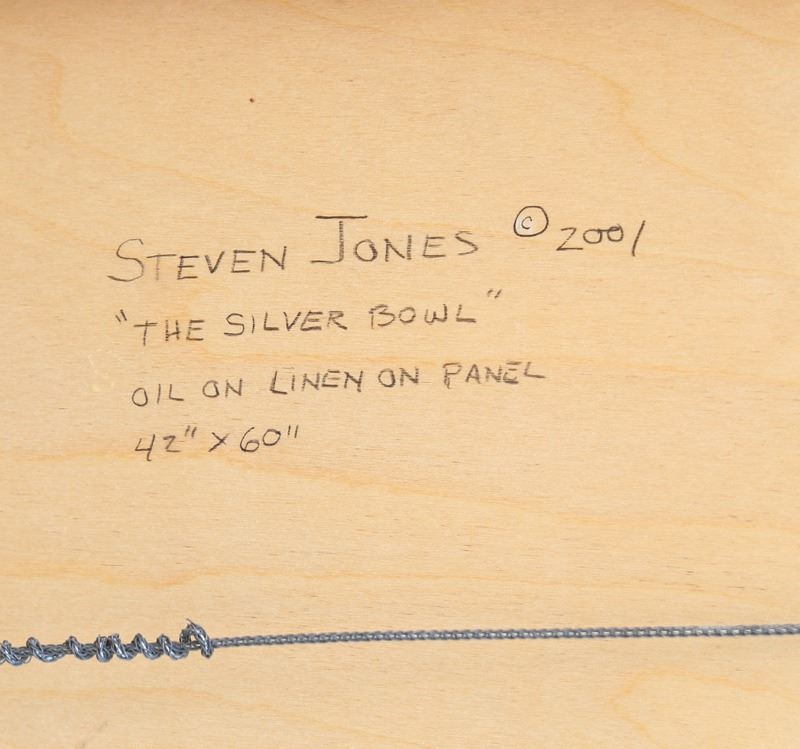 STEVEN JONES © 2001
"THE SILVER BOWL"
OIL ON LINEN ON PANEL
42" x 60"